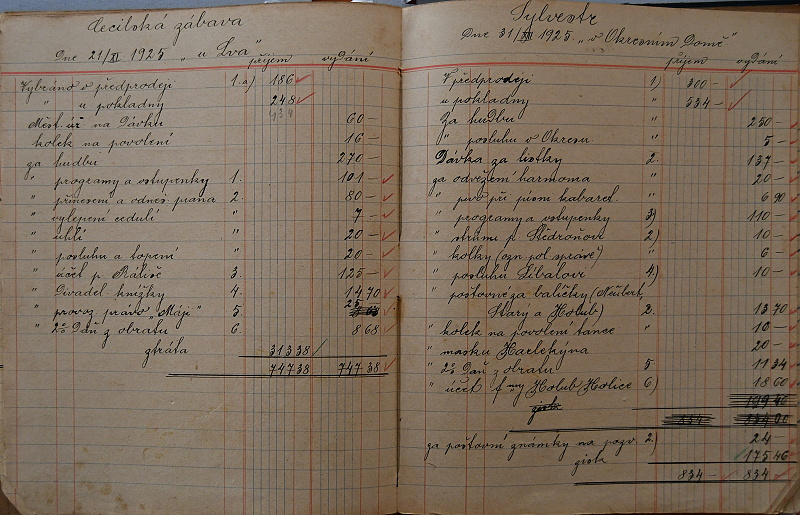 Cecilská zábava
Dne 21/XI 1925 „u Lva"
příjem vydání
Vybráno v předprodeji 1.a) 186
" u pokladny 248
434
Měst. úř. na Dávku 60 —
kolek na povolení 16 —
za hudbu 270 —
" programy a vstupenky 1. 101 —
" přinesení a odnes. piana 2. 80 —
" vylepení cedulí " 7 —
" uhlí " 20 —
" posluhu a topení " 20 —
" účet p. 3. 125 —
" Divadel. knížky 4. 14 70
" provoz. právo „Máji" 5. 25
" 2% Daň z obratu 6. 8 68
ztráta 313 38
747 38 747 38
Sylvestr
Dne 31/XII 1925. „v Okresním Domě"
příjem vydání
V předprodeji 1) 300 —
u pokladny " 534 —
Za hudbu " 250 —
" posluhu v Okresu " 5 —
Dávka za lístky 2. 137 —
za odvežení harmonia " 20 —
" pivo při písni kabaret. " 6 90
" programy a vstupenky 3) 110 —
" stravu p. Štědroňovi 2) 10 —
" kolky (ozn. pol. správě) " 6 —
" posluhu Líbalovi 4) 10 —
" poštovné za balíčky (Neubert,
Starý a Holub) 2. 13 70
" kolek na povolení tance " 10 —
" masku Harlekýna 20 —
" 2% Daň z obratu 5 11 34
" účet fmy Holub Holice 6) 18 60
za poštovní známky na pozv. 2) 24 —
zisk 175 46
834 — 834 —